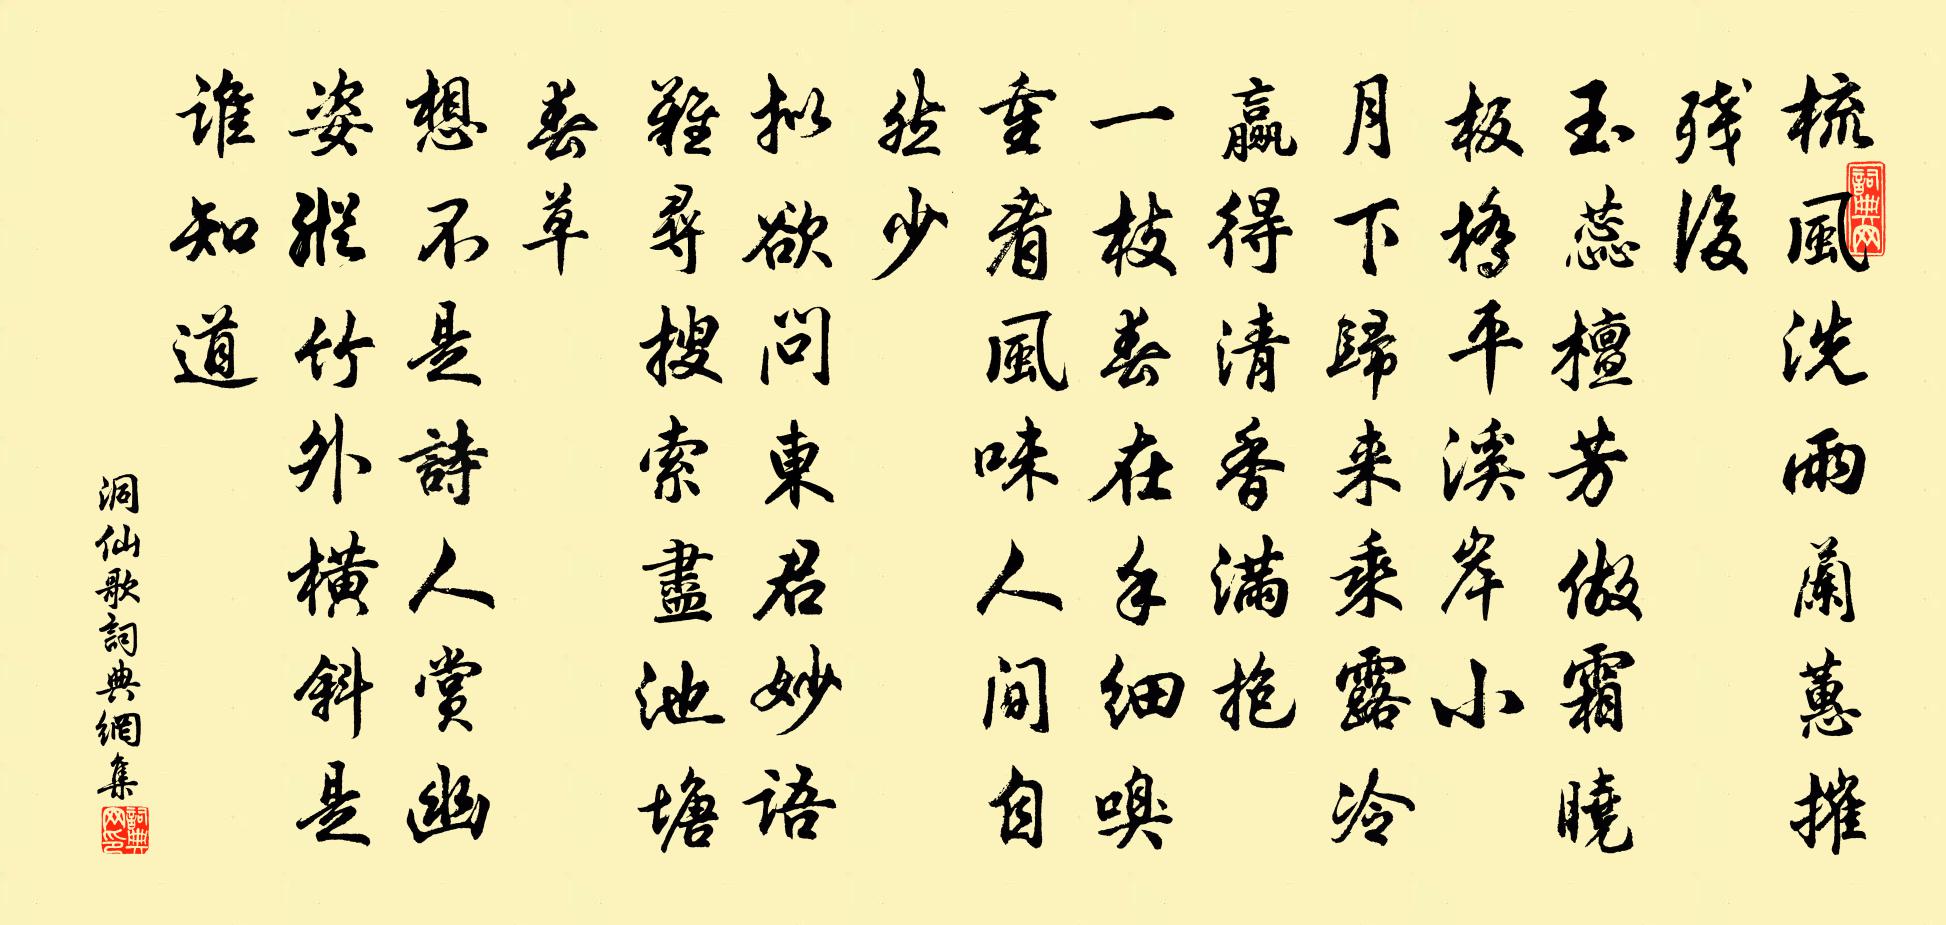 梳風洗雨蘭蕙摧
残後
玉蕊檀芳做霜曉
板橋平溪岸小
月下歸来乘露冷
贏得清香滿抱
一枝春在手細嗅
重看風味人间自
然少
拟欲問東君妙語
難尋搜索盡池塘
春草
想不是詩人賞幽
姿縱竹外橫斜是
谁知道
洞仙歌詞典網集
詞典网
詞典网印